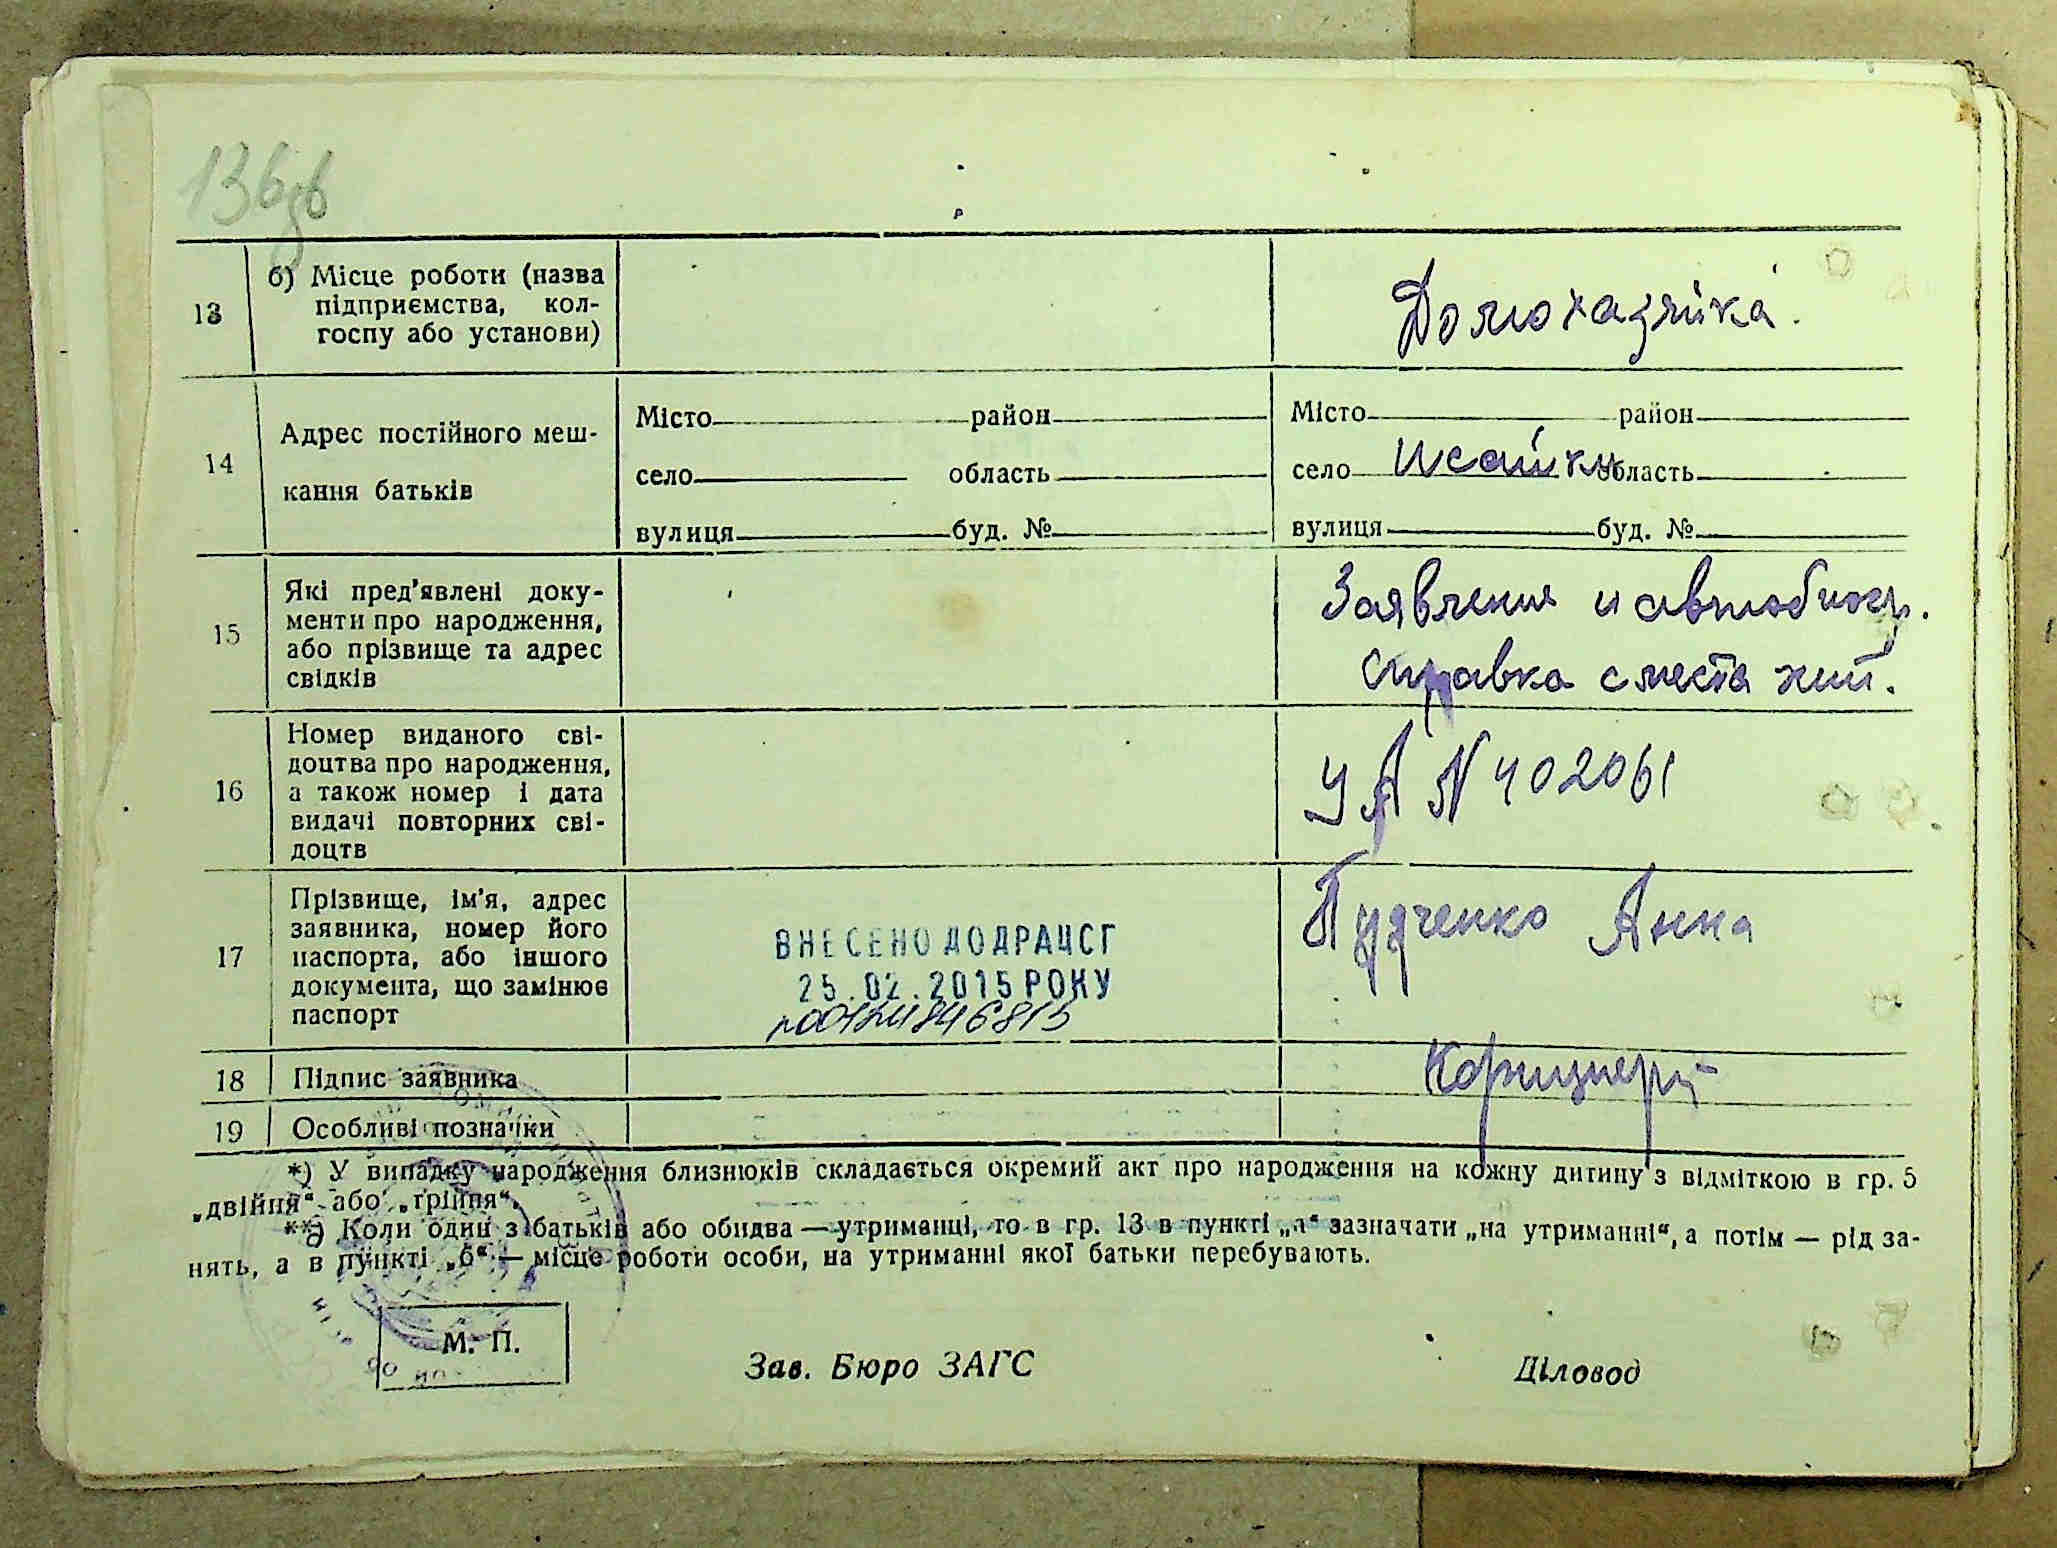 136зв
13
б) Місце роботи (назва
підприємства, кол-
госпу або установи)
Домохазяйка.
14
Адрес постійного меш-
кання батьків
Місто район
село область
вулиця буд. №
Місто район
село Исайки область
вулиця буд. №
15
Які пред'явлені доку-
менти про народження,
або прізвище та адрес
свідків
Заявления и автобиогр.
справка с места жит.
16
Номер виданого сві-
доцтва про народження,
а також номер і дата
видачі повторних сві-
доцтв
УА N 402061
17
Прізвище, ім'я, адрес
заявника, номер його
паспорта, або іншого
документа, що замінює
паспорт
ВНЕСЕНО ДО ДРАЦСГ
25.02.2015 РОКУ
Анна
18
Підпис заявника
19
Особливі позначки
*) У випадку народження близнюків складається окремий акт про народження на кожну дитину з відміткою в гр. 5
„двійня“ або „трійня“.
**) Коли один з батьків або обидва — утриманці, то в гр. 13 в пункті „а“ зазначати „на утриманні“, а потім — рід за-
нять, а в пункті „б“ — місце роботи особи, на утриманні якої батьки перебувають.
М. П.
Зав. Бюро ЗАГС
Діловод